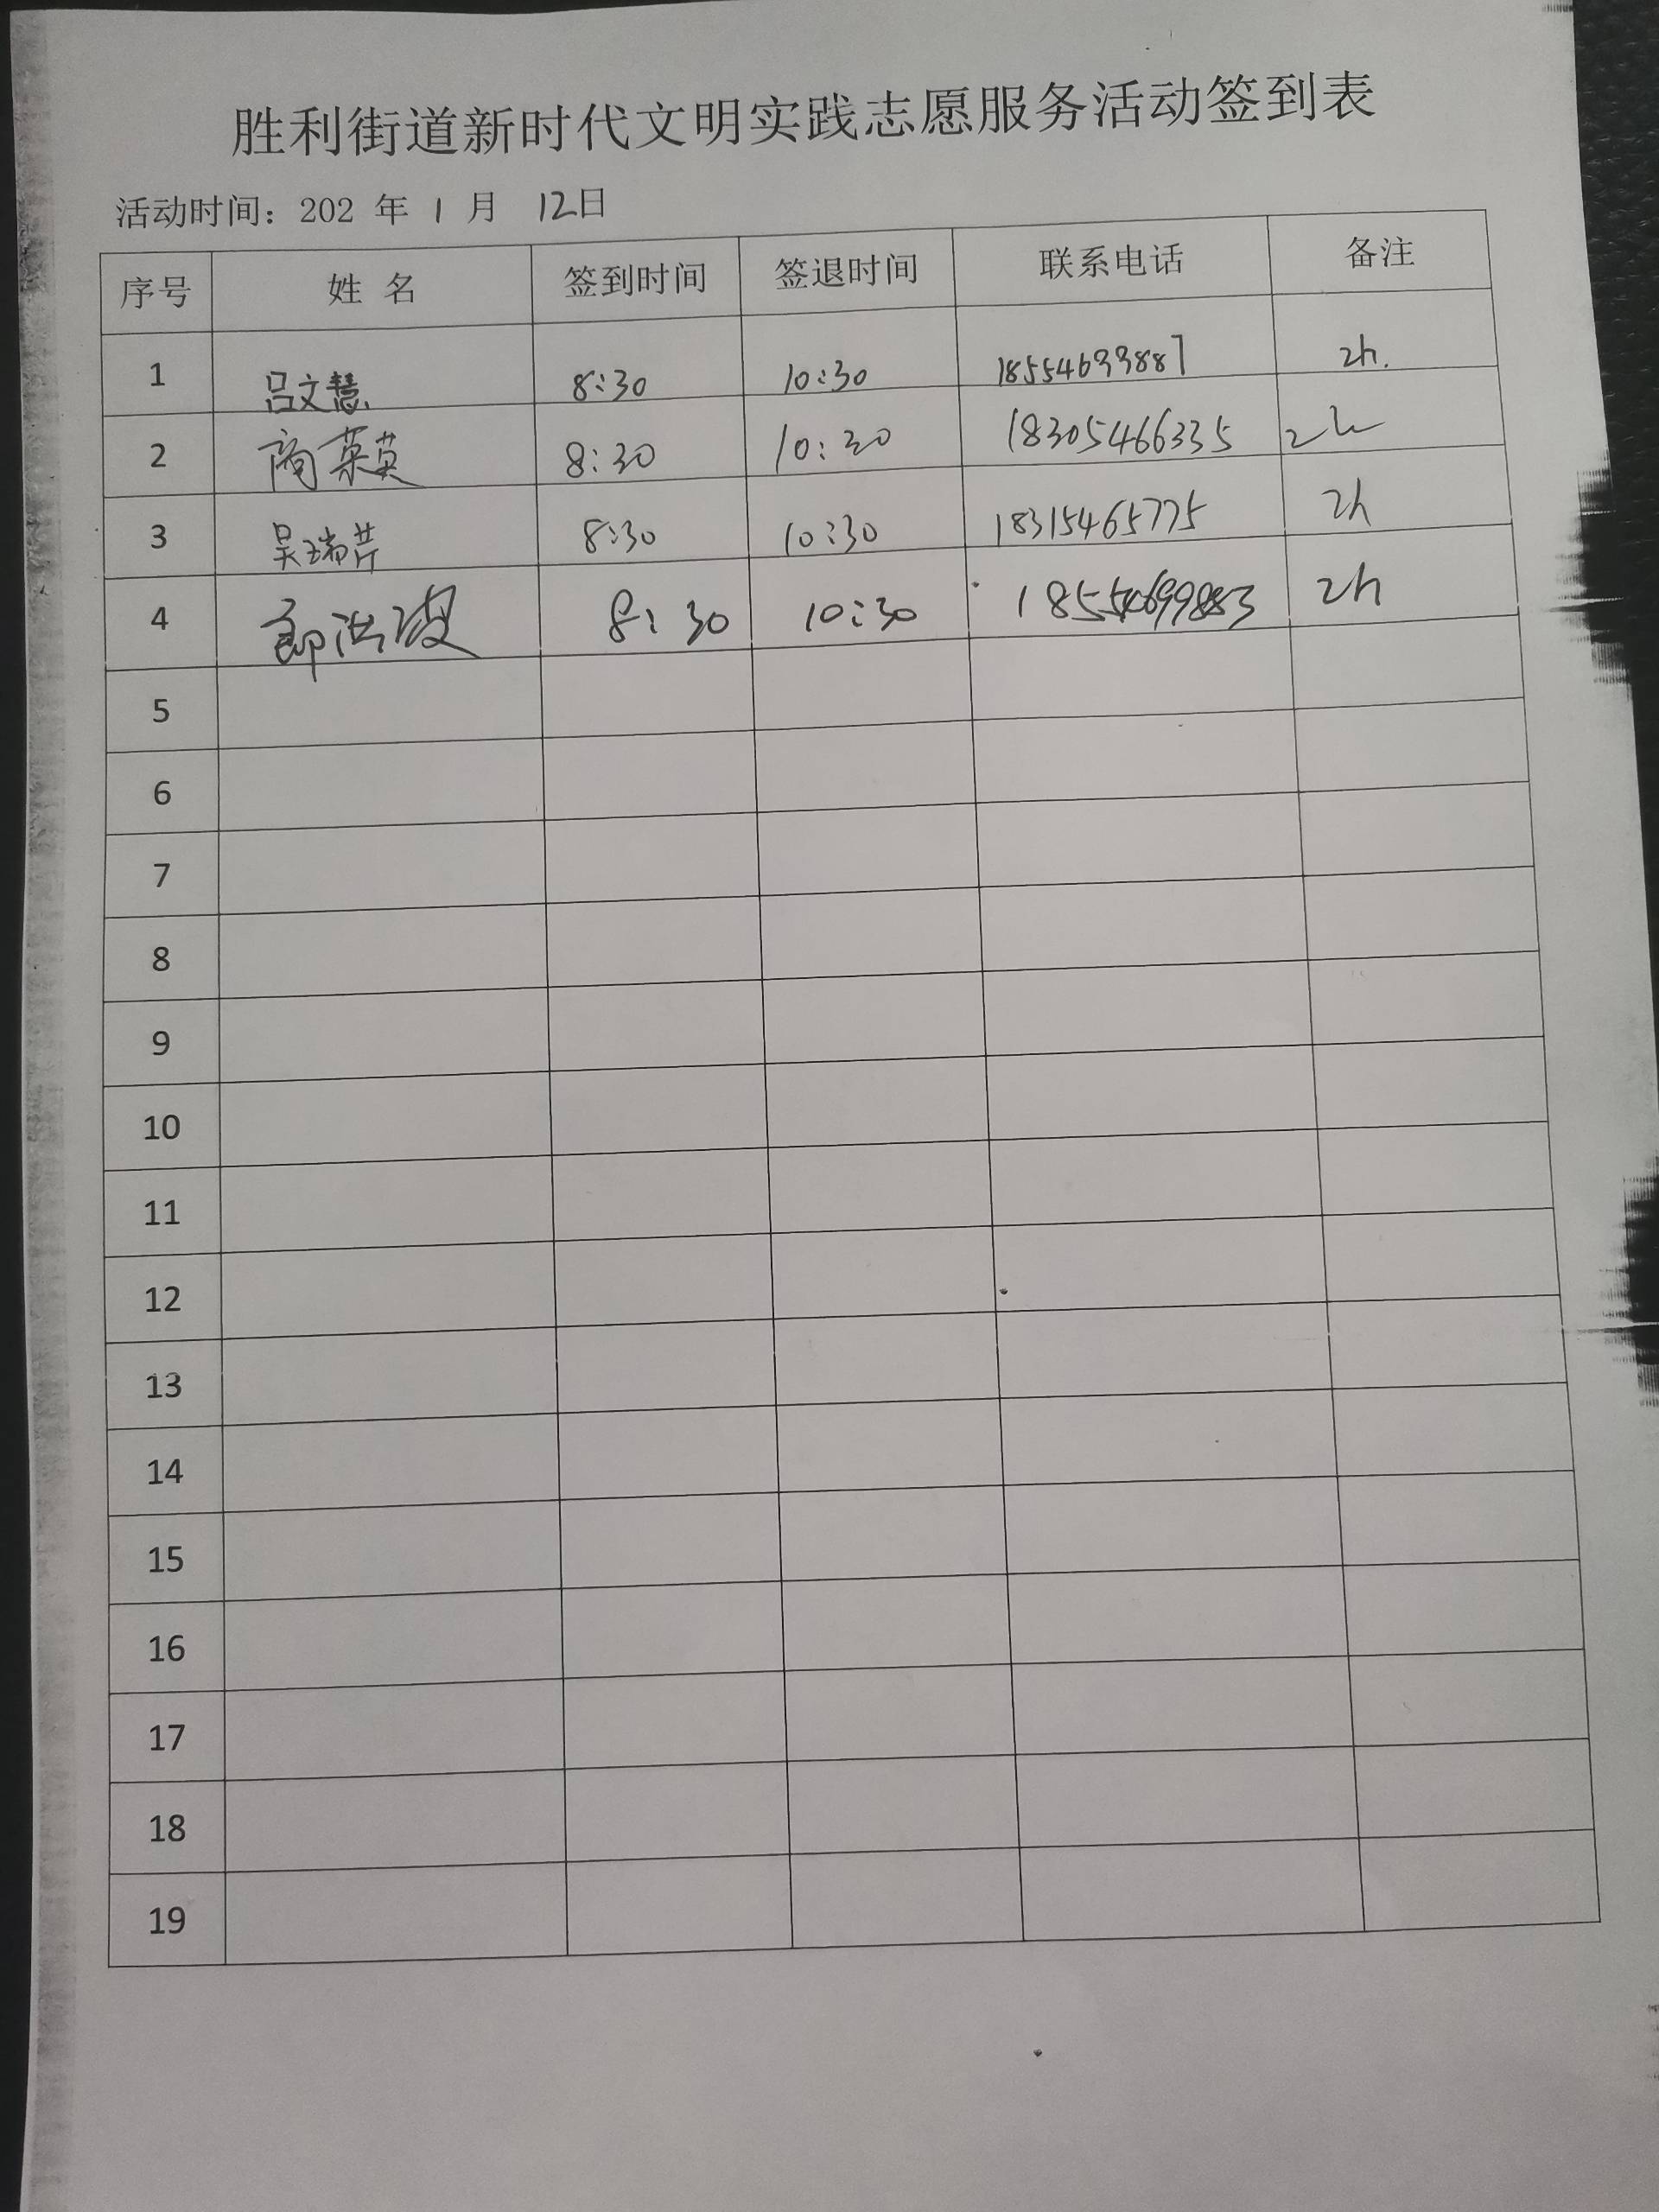 胜利街道新时代文明实践志愿服务活动签到表
活动时间：202 年 1 月 12日
序号 姓 名 签到时间 签退时间 联系电话 备注
1 吕文慧 8:30 10:30 2h.
2 商菜英 8:30 10:30 18305466335 2h
3 吴瑞芹 8:30 10:30 18315465775 2h
4 8:30 10:30 2h
5
6
7
8
9
10
11
12
13
14
15
16
17
18
19